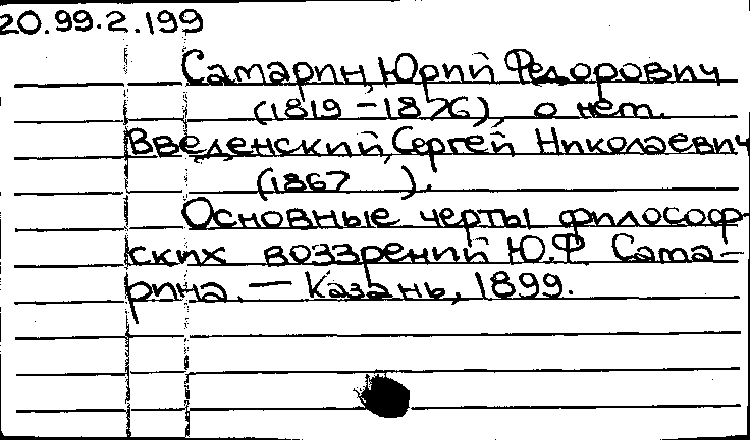 20.99.2.199
Самарин, Юрий Федорович
(1819-1876), о нем.
Введенский, Сергей Николаевич
(1867 ).
Основные черты философ-
ских воззрений Ю.Ф Сама-
рина. — Казань, 1899.